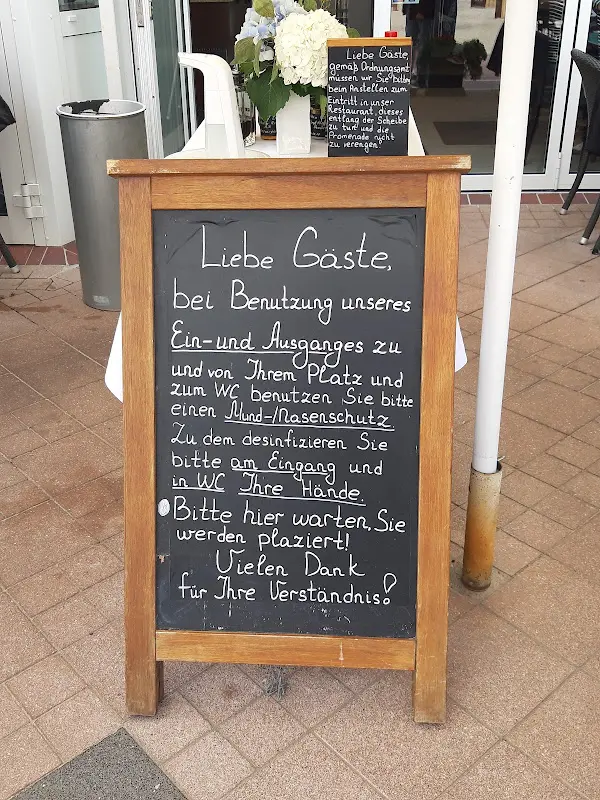 Liebe Gäste,
gemäß Ordnungsamt
müssen wir Sie bitten
beim Anstellen zum
Eintritt in unser
Restaurant, dieses
entlang der Scheibe
zu tun und die
Promenade nicht
zu verengen.
Liebe Gäste,
bei Benutzung unseres
Ein-und Ausganges zu
und von Ihrem Platz und
zum WC benutzen Sie bitte
einen Mund-/Nasenschutz.
Zu dem desinfizieren Sie
bitte am Eingang und
in WC Ihre Hände.
Bitte hier warten, Sie
werden plaziert!
Vielen Dank
für Ihre Verständnis!